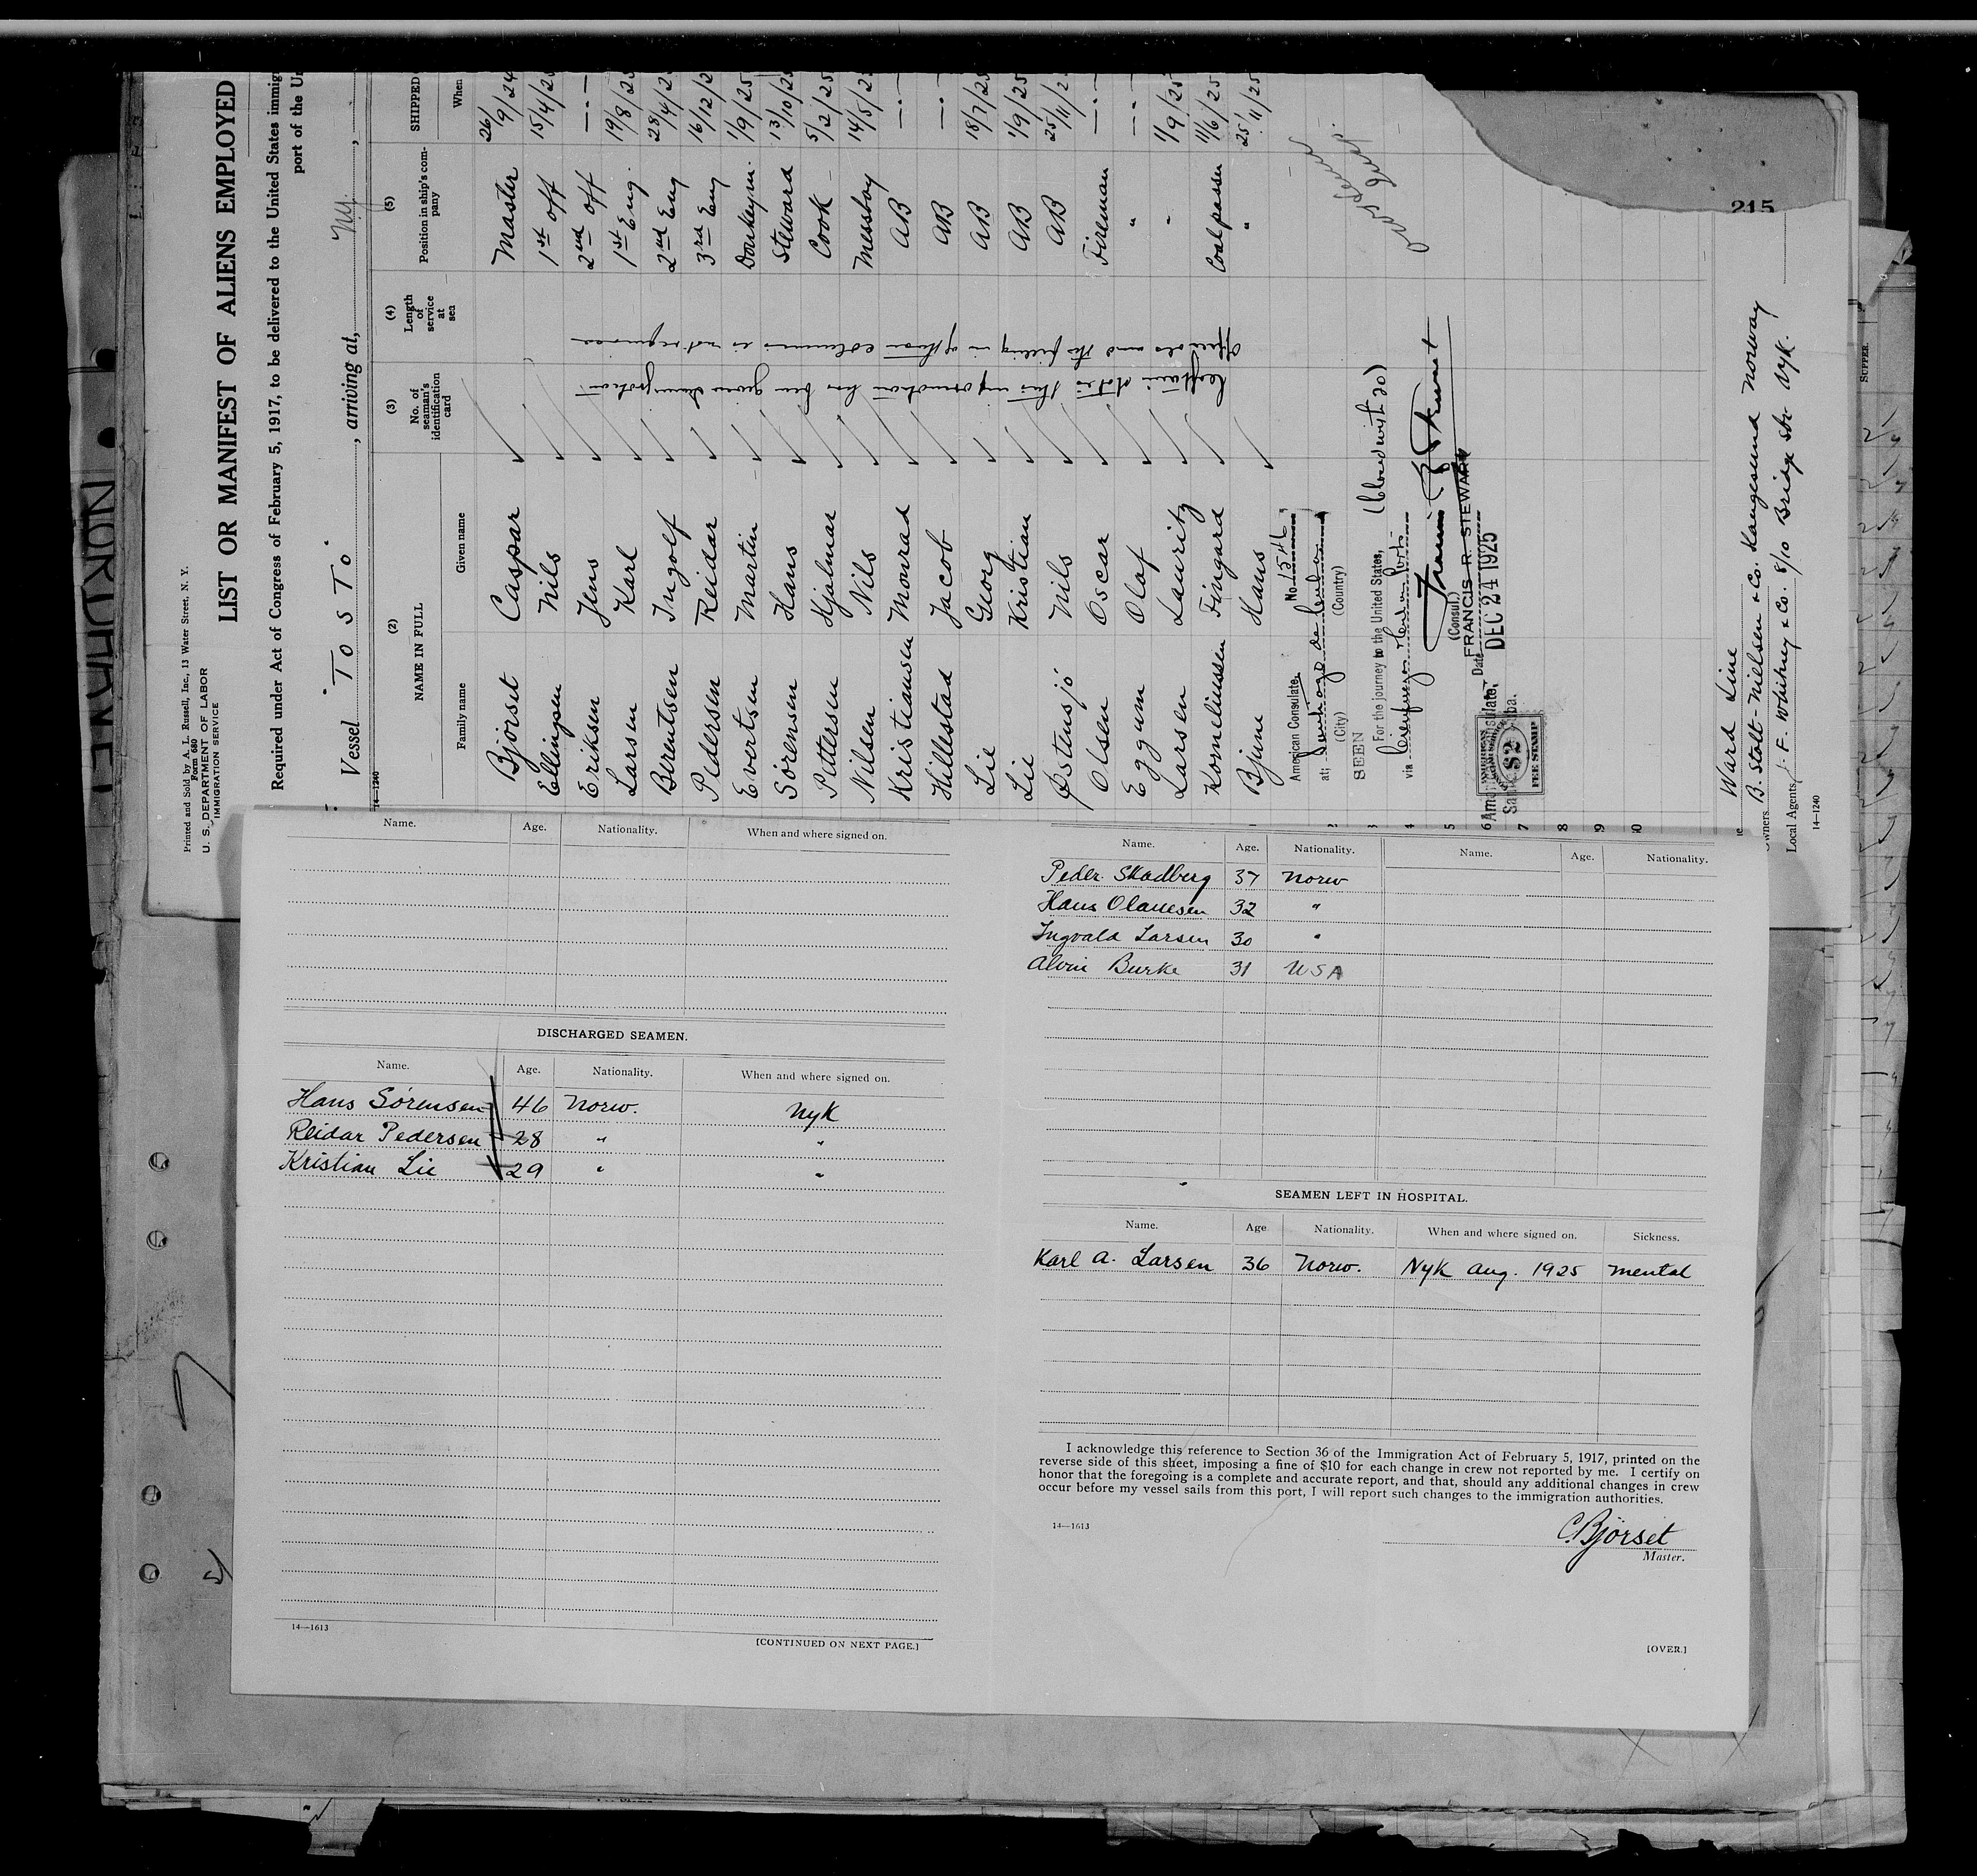 215
NORDHAVET
SUPPER.
Printed and Sold by A. L. Russell, Inc., 13 Water Street, N. Y.
Form 680
U. S. DEPARTMENT OF LABOR
IMMIGRATION SERVICE
LIST OR MANIFEST OF ALIENS EMPLOYED
Required under Act of Congress of February 5, 1917, to be delivered to the United States immig
port of the Un
Vessel "TOSTO" , arriving at, Ny. ,
14-1240
(2) (3) (4) (5) SHIPPED
NAME IN FULL No. of seaman's identification card Length of service at sea Position in ship's company When
Family name Given name
Bjørset Caspar Master 26/9/24
Ellingsen Nils 1st off 15/4/25
Eriksen Jens 2nd off —.—
Larsen Karl 1st Eng. 19/8/25
Berentsen Ingolf 2nd Eng 28/4/2
Pedersen Reidar 3rd Eng 16/12/2
Evertsen Martin Donkeym. 1/9/25
Sörensen Hans Steward 13/10/25
Pittersen Hjalmar Cook 5/2/25
Nilsen Nils Messboy 14/5/25
Kristiansen Monrad AB —.—
Hillestad Jacob AB —.—
Lie Georg AB 18/7/25
Lie Kristian AB 1/9/25
Østensjö Nils AB 25/11/2
Olsen Oscar Fireman —.—
Eggum Olaf " —.—
Larsen Lauritz " 1/9/25
Korneliussen Fingard Coalpasser 11/6/25
Bjune Hans " 25/11/25
Captain states this information has been given Immigration
Officials and the filling in of these columns is not required
American Consulate, No. 1546
at; Santiago de Cuba
(City) (Country)
SEEN
For the journey to the United States, (Cloud with 20)
via Cienfuegos
(Consul)
FRANCIS R. STEWART
Date DEC 24 1925
American Consulate,
AMERICAN
$2
FEE STAMP
1
2
3
4
5
6
7
8
9
10
Ward Line
Owners B. Stolt-Nielsen & Co. Haugesund Norway
Local Agents J. F. Whitney & Co. 8/10 Bridge Str Nyk.
14-1240
Name. Age. Nationality. When and where signed on.
DISCHARGED SEAMEN.
Name. Age. Nationality. When and where signed on.
Hans Sörensen 46 Norw. Nyk
Reidar Pedersen 28 " "
Kristian Lie 29 " "
14—1613
[CONTINUED ON NEXT PAGE.]
Name. Age. Nationality. Name. Age. Nationality.
Peder Skadberg 37 Norw
Hans Olausen 32 "
Ingvald Larsen 30 "
Alvin Burke 31 USA
SEAMEN LEFT IN HOSPITAL.
Name. Age Nationality. When and where signed on. Sickness.
Karl A. Larsen 36 Norw. Nyk Aug. 1925 mental
I acknowledge this reference to Section 36 of the Immigration Act of February 5, 1917, printed on the
reverse side of this sheet, imposing a fine of $10 for each change in crew not reported by me. I certify on
honor that the foregoing is a complete and accurate report, and that, should any additional changes in crew
occur before my vessel sails from this port, I will report such changes to the immigration authorities.
14—1613
C. Bjørset
Master.
[OVER.]